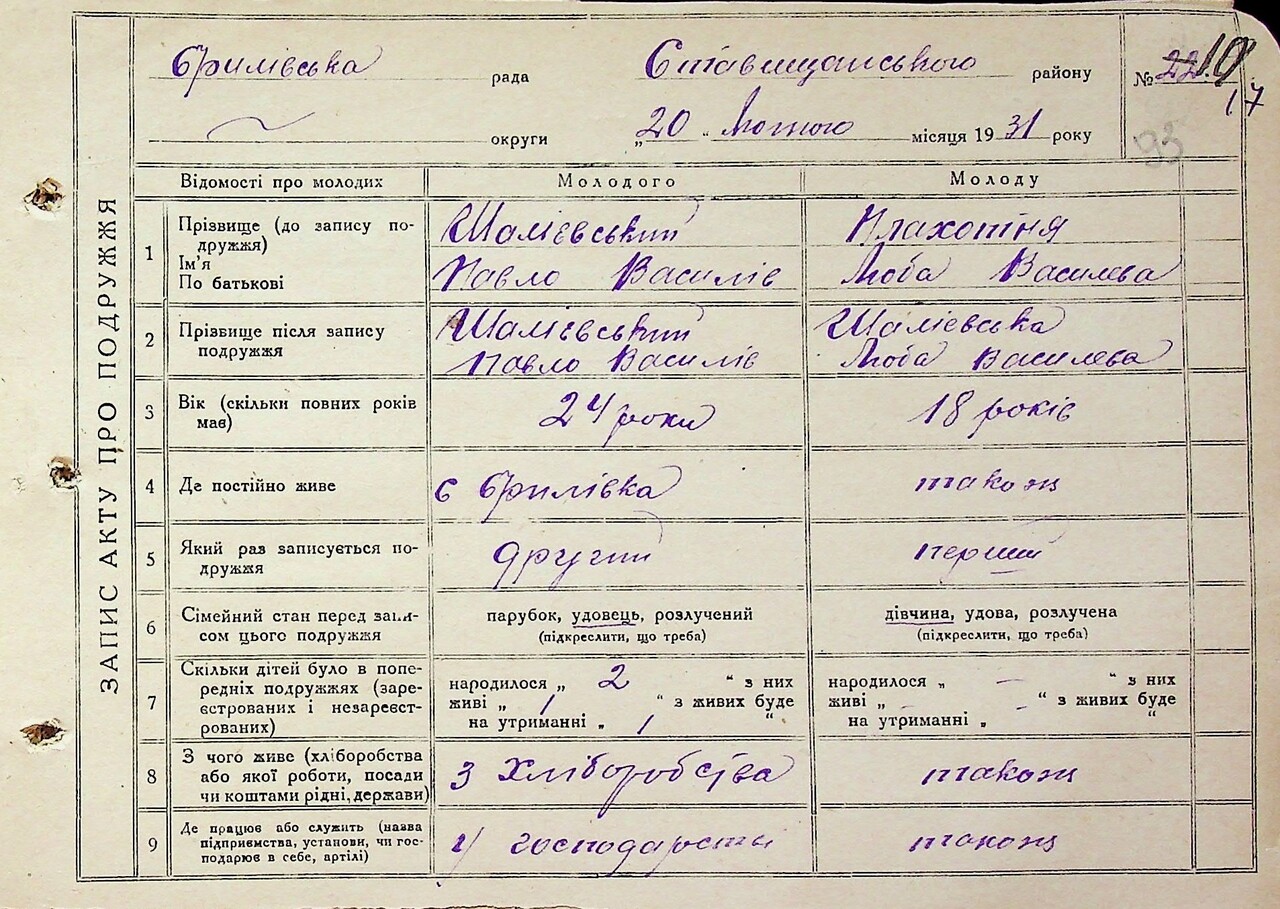 Єрилівська рада Ставищанського району № 22 10
17
округи „20" Лютого місяця 1931 року
93
ЗАПИС АКТУ ПРО ПОДРУЖЖЯ
Відомості про молодих Молодого Молоду
1 Прізвище (до запису по-
дружжя)
Ім'я
По батькові
Шалієвський
Павло Василів
Плахотня
Люба Василева
2 Прізвище після запису
подружжя
Шалієвський
Павло Василів
Шалієвська
Люба Василева
3 Вік (скільки повних років
має)
24 роки 18 років
4 Де постійно живе с Єрилівка також
5 Який раз записується по-
дружжя
другий перший
6 Сімейний стан перед запи-
сом цього подружжя
парубок, удовець, розлучений
(підкреслити, що треба)
дівчина, удова, розлучена
(підкреслити, що треба)
7 Скільки дітей було в попе-
редніх подружжях (заре-
єстрованих і незареєст-
рованих)
народилося „ 2 " з них
живі „ 1 " з живих буде
на утриманні „ 1 "
народилося „ – " з них
живі „ – – " з живих буде
на утриманні „ "
8 З чого живе (хліборобства
або якої роботи, посади
чи коштами рідні, держави)
З хліборобства також
9 Де працює або служить (назва
підприємства, установи, чи гос-
подарює в себе, артілі)
У господарстві також